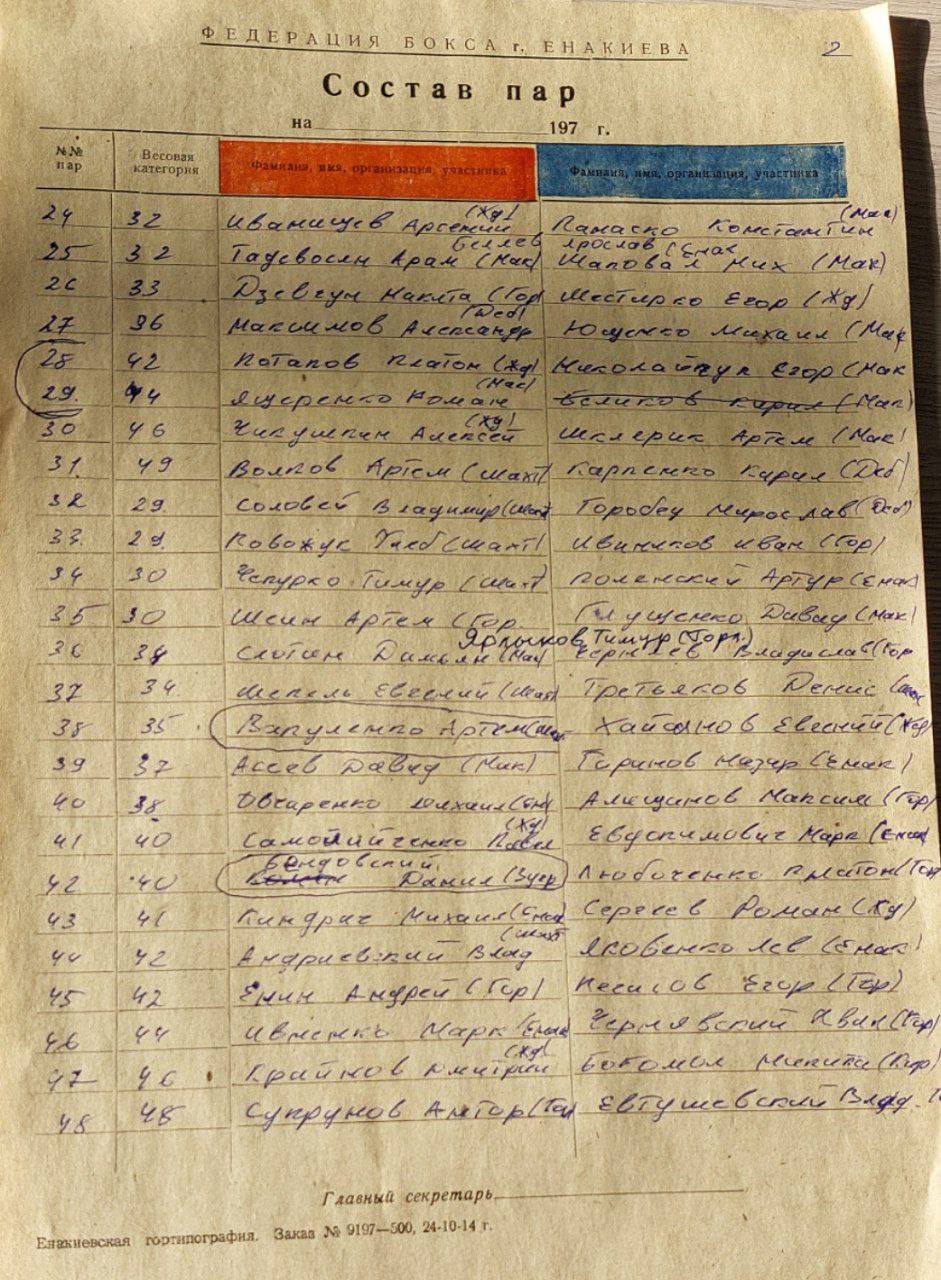 ФЕДЕРАЦИЯ БОКСА г. ЕНАКИЕВА
2
Состав пар
на 197 г.
№№ пар Весовая категория Фамилия, имя, организация, участника Фамилия, имя, организация, участника
24 32 Иванищев Арсений (Жд) Панаско Константин (Мак)
25 32 Тадевосян Арам (Мак) Беляев Ярослав (Енак Шаповал Мих (Мак)
26 33 Дзевгун Никита (Гор) Шестирко Егор (Жд)
27 36 Максимов Александр (Деб) Ющенко Михаил (Мак
28 42 Потапов Платон (Жд) Николайчук Егор (Мак
29. 44 Ященко Роман (Мак) Великов Кирил (Мак)
30 46 Чикушкин Алексей (Жд) Шклерик Артем (Мак)
31. 49 Волков Артем (Шахт) Карпенко Кирил (Деб)
32 29. Соловей Владимир (Шахт) Горобец Мирослав (Деб)
33. 29. Повожук Глеб (Шахт) Ивиняков Иван (Гор)
34 30 Чепурко Тимур (Шахт) Поленский Артур (Енак)
35 30 Шеин Артем (Гор. Глущенко Давид (Мак)
Ярлыков Тимур (Горл.)
36 34 Слотин Демьян (Мак) Владислав (Гор
37 34 Шепель Евгений (Шахт) Третьяков Денис (Шахт
38 35 Вакуленко Артем (Шахт Хайсанов Евгений (Жд)
39 37 Асеев Давид (Мак) Гаринов Назар (Енак)
40 38 Овчаренко Михаил (Ен) Алещинов Максим (Гор)
41 40 Самойличенко Павел (Жд) Евдокимович Марк (Енак
42 40 Бендовский Данил (Вугр Любоченко Платон (Гор
43 41 Киндрич Михаил (Енак) Сергеев Роман (Жд)
44 42 Андриевский Влад (Шахт Яковенко Лев (Енак)
45 42 Енин Андрей (Гор) Несисов Егор (Гор)
46 44 Ивненко Марк (Енак Чернявский Иван (Гор)
47 46 Крайнов Дмитрий (Жд) Богомол Никита (Кир)
48 48 Супрунов Антор (Гор Евтушевский Влад.
Главный секретарь
Енакиевская гортипография. Заказ № 9197—500, 24-10-14 г.